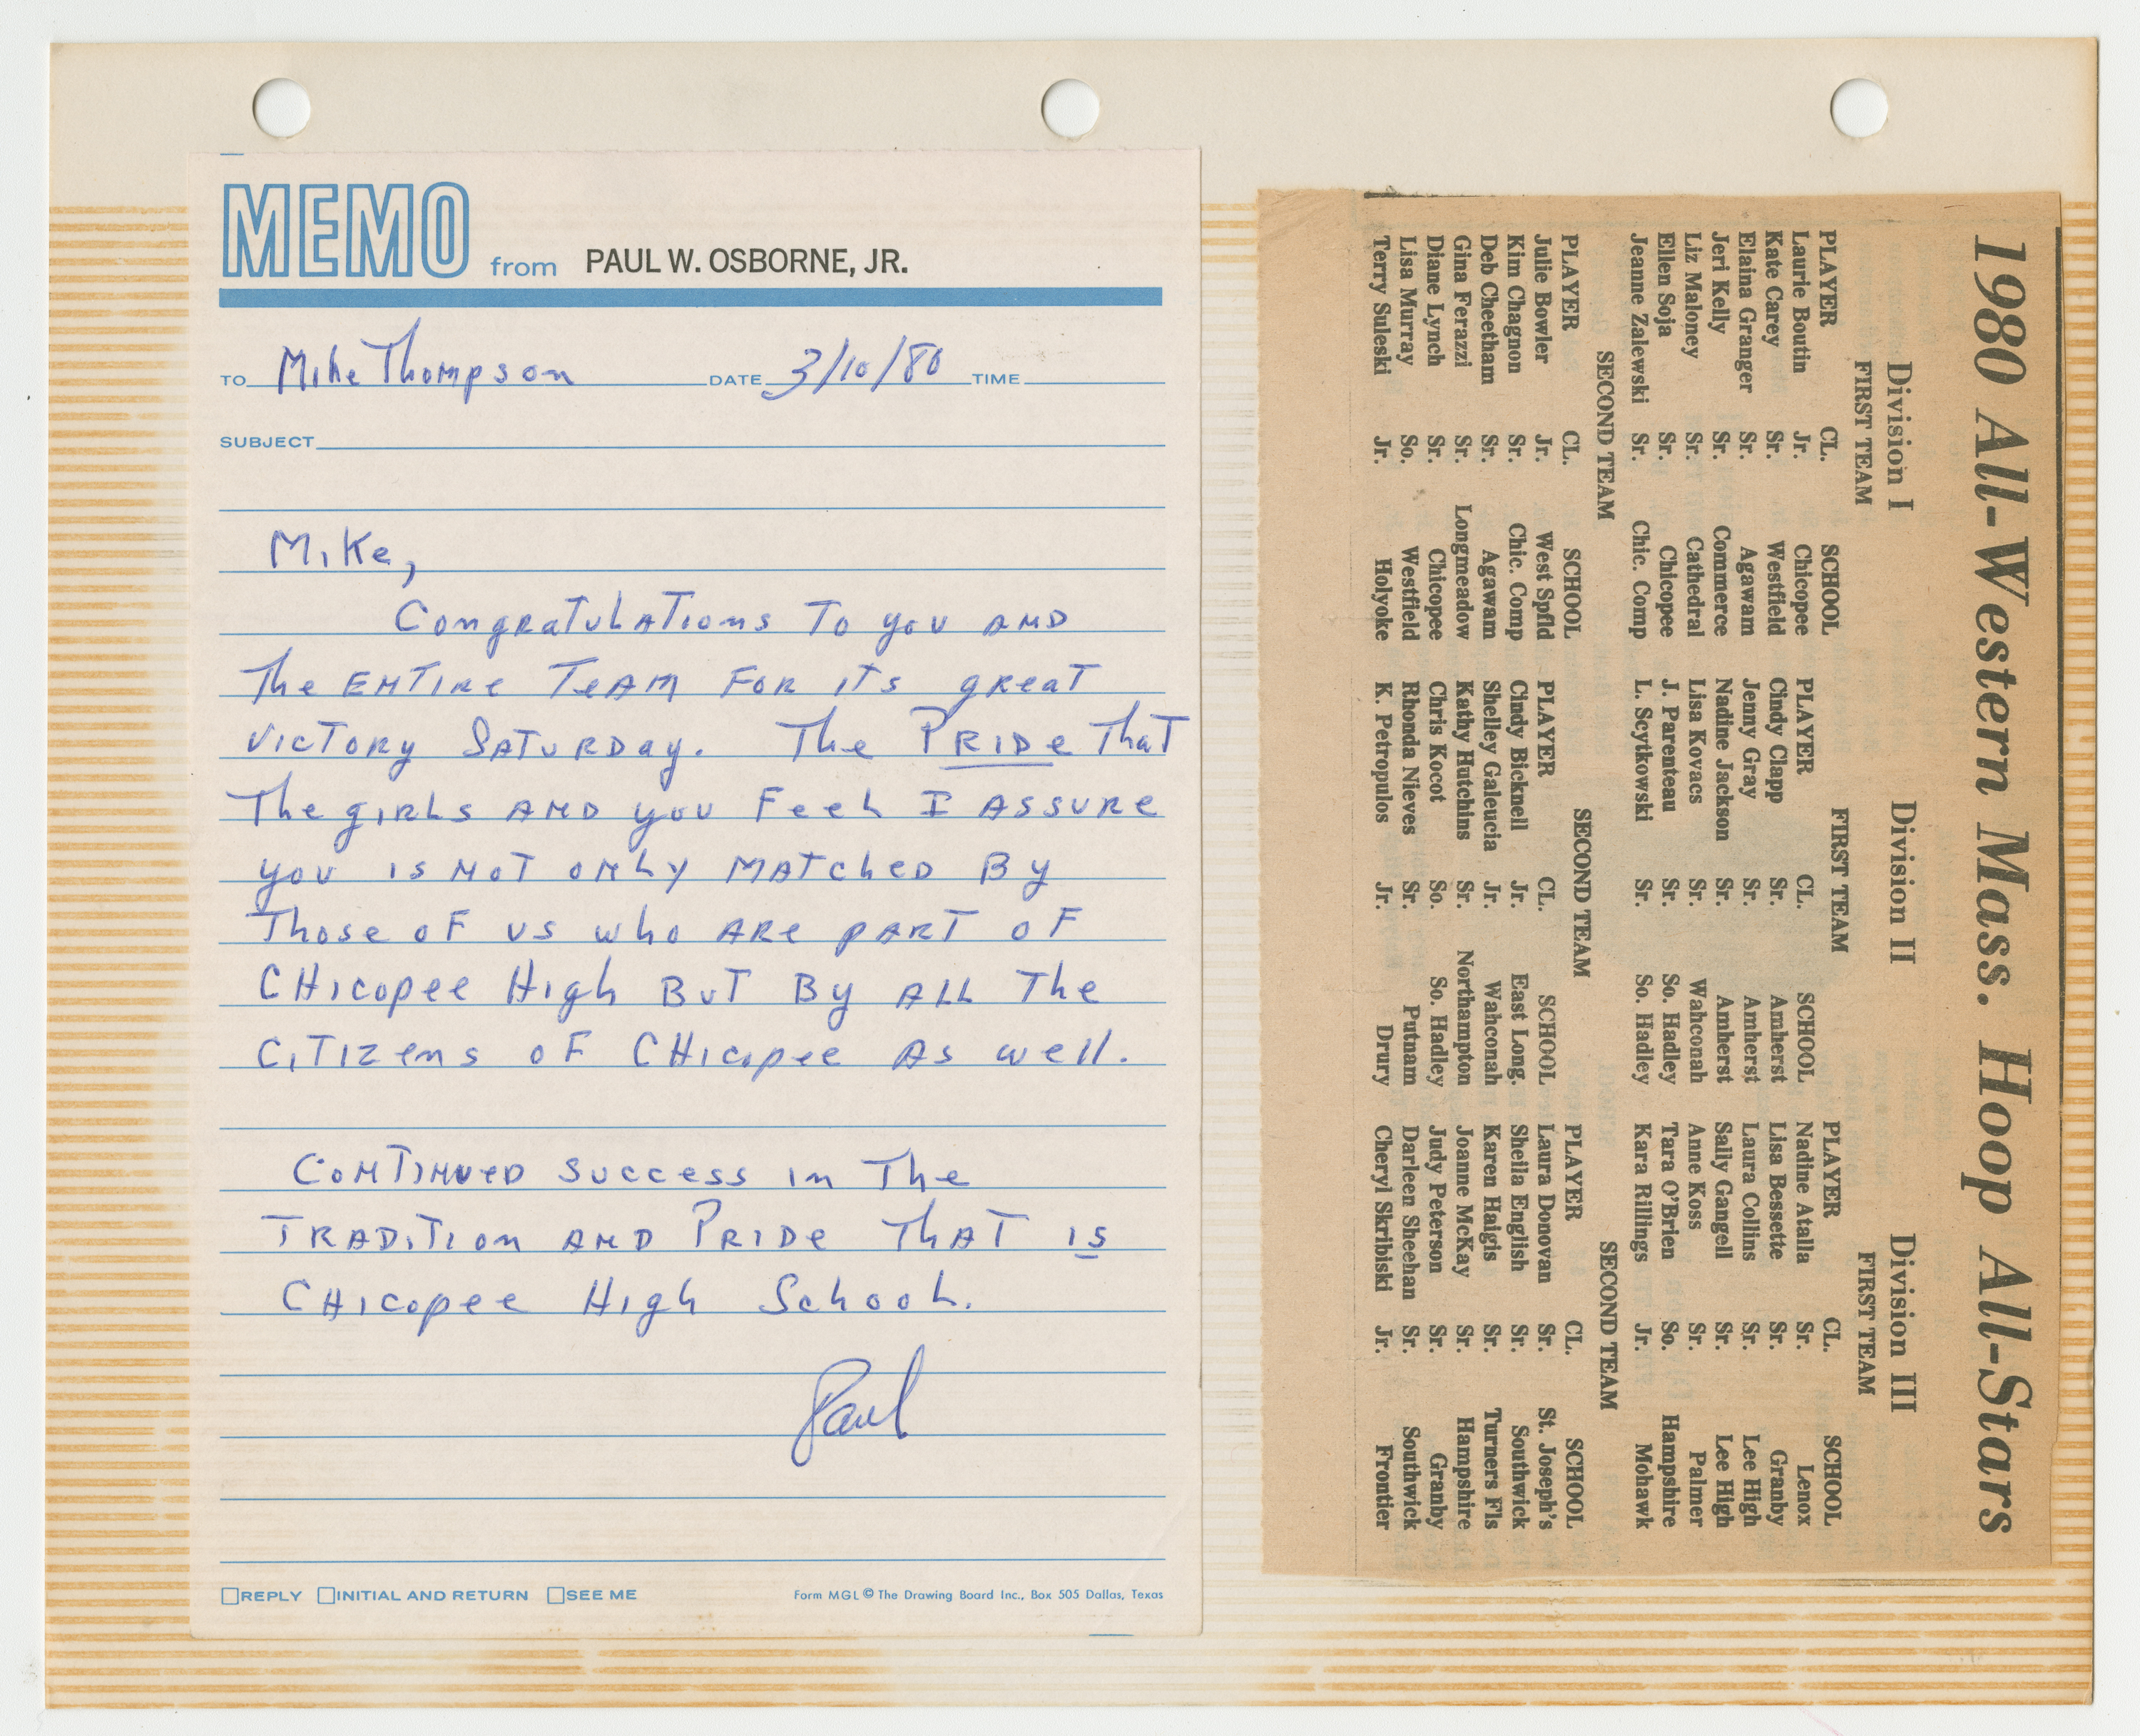 MEMO from PAUL W. OSBORNE, JR.
TO Mike Thompson DATE 3/10/80 TIME
SUBJECT
Mike,
Congratulations to you and
The entire team for its great
victory Saturday. The Pride that
The girls and you feel I assure
you is not only matched by
Those of us who are part of
Chicopee High but by all the
citizens of Chicopee as well.
Continued success in the
tradition and Pride that is
Chicopee High School.
Paul
REPLY INITIAL AND RETURN SEE ME
Form MGL © The Drawing Board Inc., Box 505 Dallas, Texas
1980 All-Western Mass. Hoop All-Stars
Division I
FIRST TEAM
PLAYER CL. SCHOOL
Laurie Boutin Jr. Chicopee
Kate Carey Sr. Westfield
Elaina Granger Sr. Agawam
Jeri Kelly Sr. Commerce
Liz Maloney Sr. Cathedral
Ellen Soja Sr. Chicopee
Jeanne Zalewski Sr. Chic. Comp
SECOND TEAM
PLAYER CL. SCHOOL
Julie Bowler Jr. West Spfld
Kim Chagnon Sr. Chic. Comp
Deb Cheetham Sr. Agawam
Gina Ferazzi Sr. Longmeadow
Diane Lynch Sr. Chicopee
Lisa Murray So. Westfield
Terry Suleski Jr. Holyoke
Division II
FIRST TEAM
PLAYER CL. SCHOOL
Cindy Clapp Sr. Amherst
Jenny Gray Sr. Amherst
Nadine Jackson Sr. Amherst
Lisa Kovacs Sr. Wahconah
J. Parenteau Sr. So. Hadley
L. Scytkowski Sr. So. Hadley
SECOND TEAM
PLAYER CL. SCHOOL
Cindy Bicknell Jr. East Long.
Shelley Galeucia Jr. Wahconah
Kathy Hutchins Sr. Northampton
Chris Kocot So. So. Hadley
Rhonda Nieves Sr. Putnam
K. Petropulos Jr. Drury
Division III
FIRST TEAM
PLAYER CL. SCHOOL
Nadine Atalla Sr. Lenox
Lisa Bessette Sr. Granby
Laura Collins Sr. Lee High
Sally Gangell Sr. Lee High
Anne Koss Sr. Palmer
Tara O'Brien So. Hampshire
Kara Rillings Jr. Mohawk
SECOND TEAM
PLAYER CL. SCHOOL
Laura Donovan Sr. St. Joseph's
Sheila English Sr. Southwick
Karen Haigis Sr. Turners Fls
Joanne McKay Sr. Hampshire
Judy Peterson Sr. Granby
Darleen Sheehan Sr. Southwick
Cheryl Skribiski Jr. Frontier